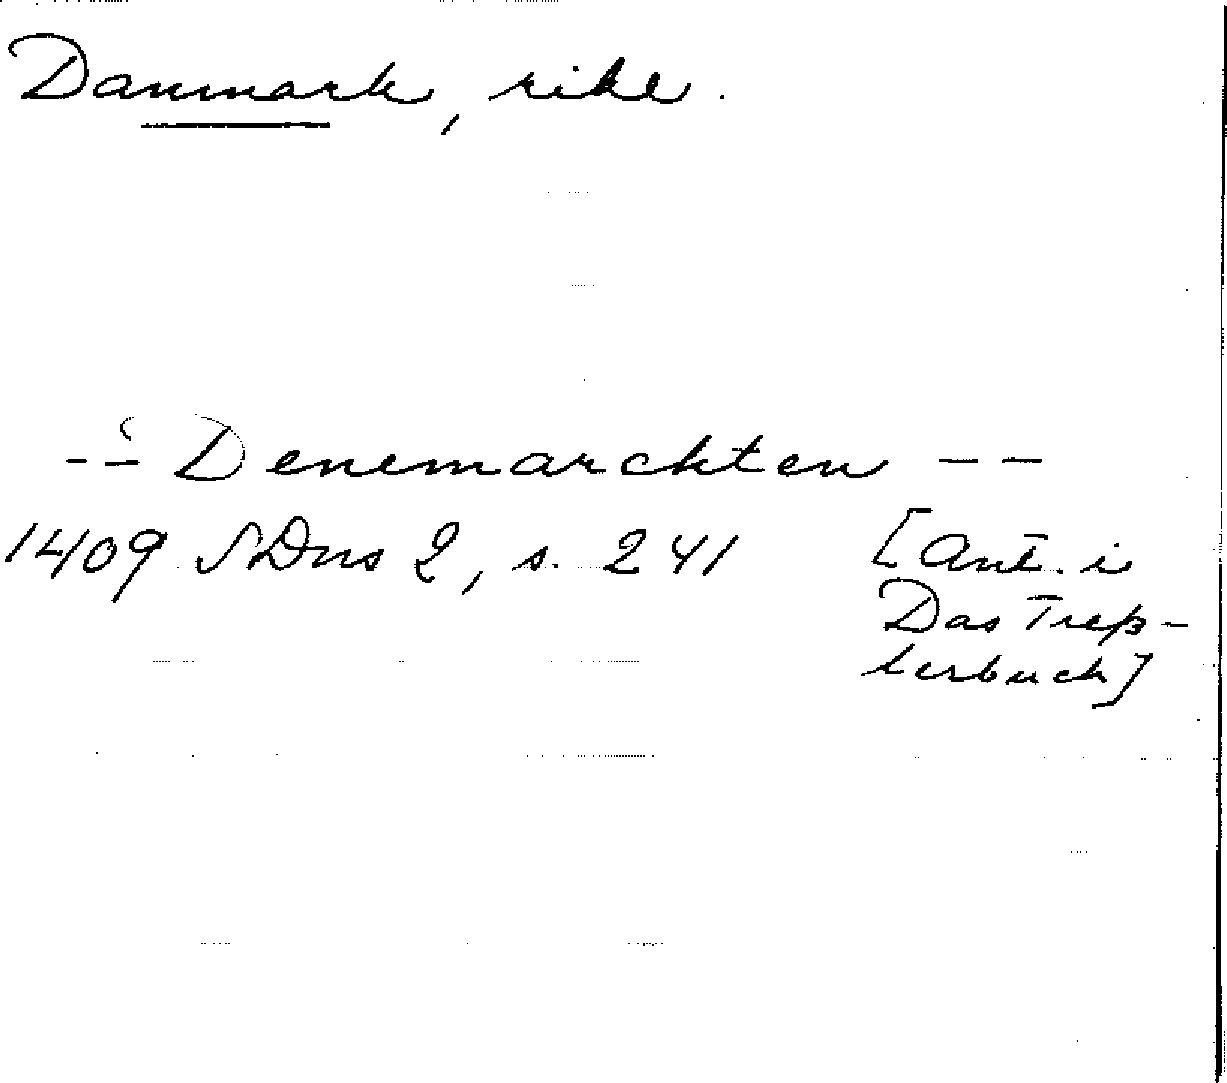 Danmark, rike.
-- i Denemarckten --
1409 SDns 2, s. 241 [Ant. i
Das Treß-
lerbuch]